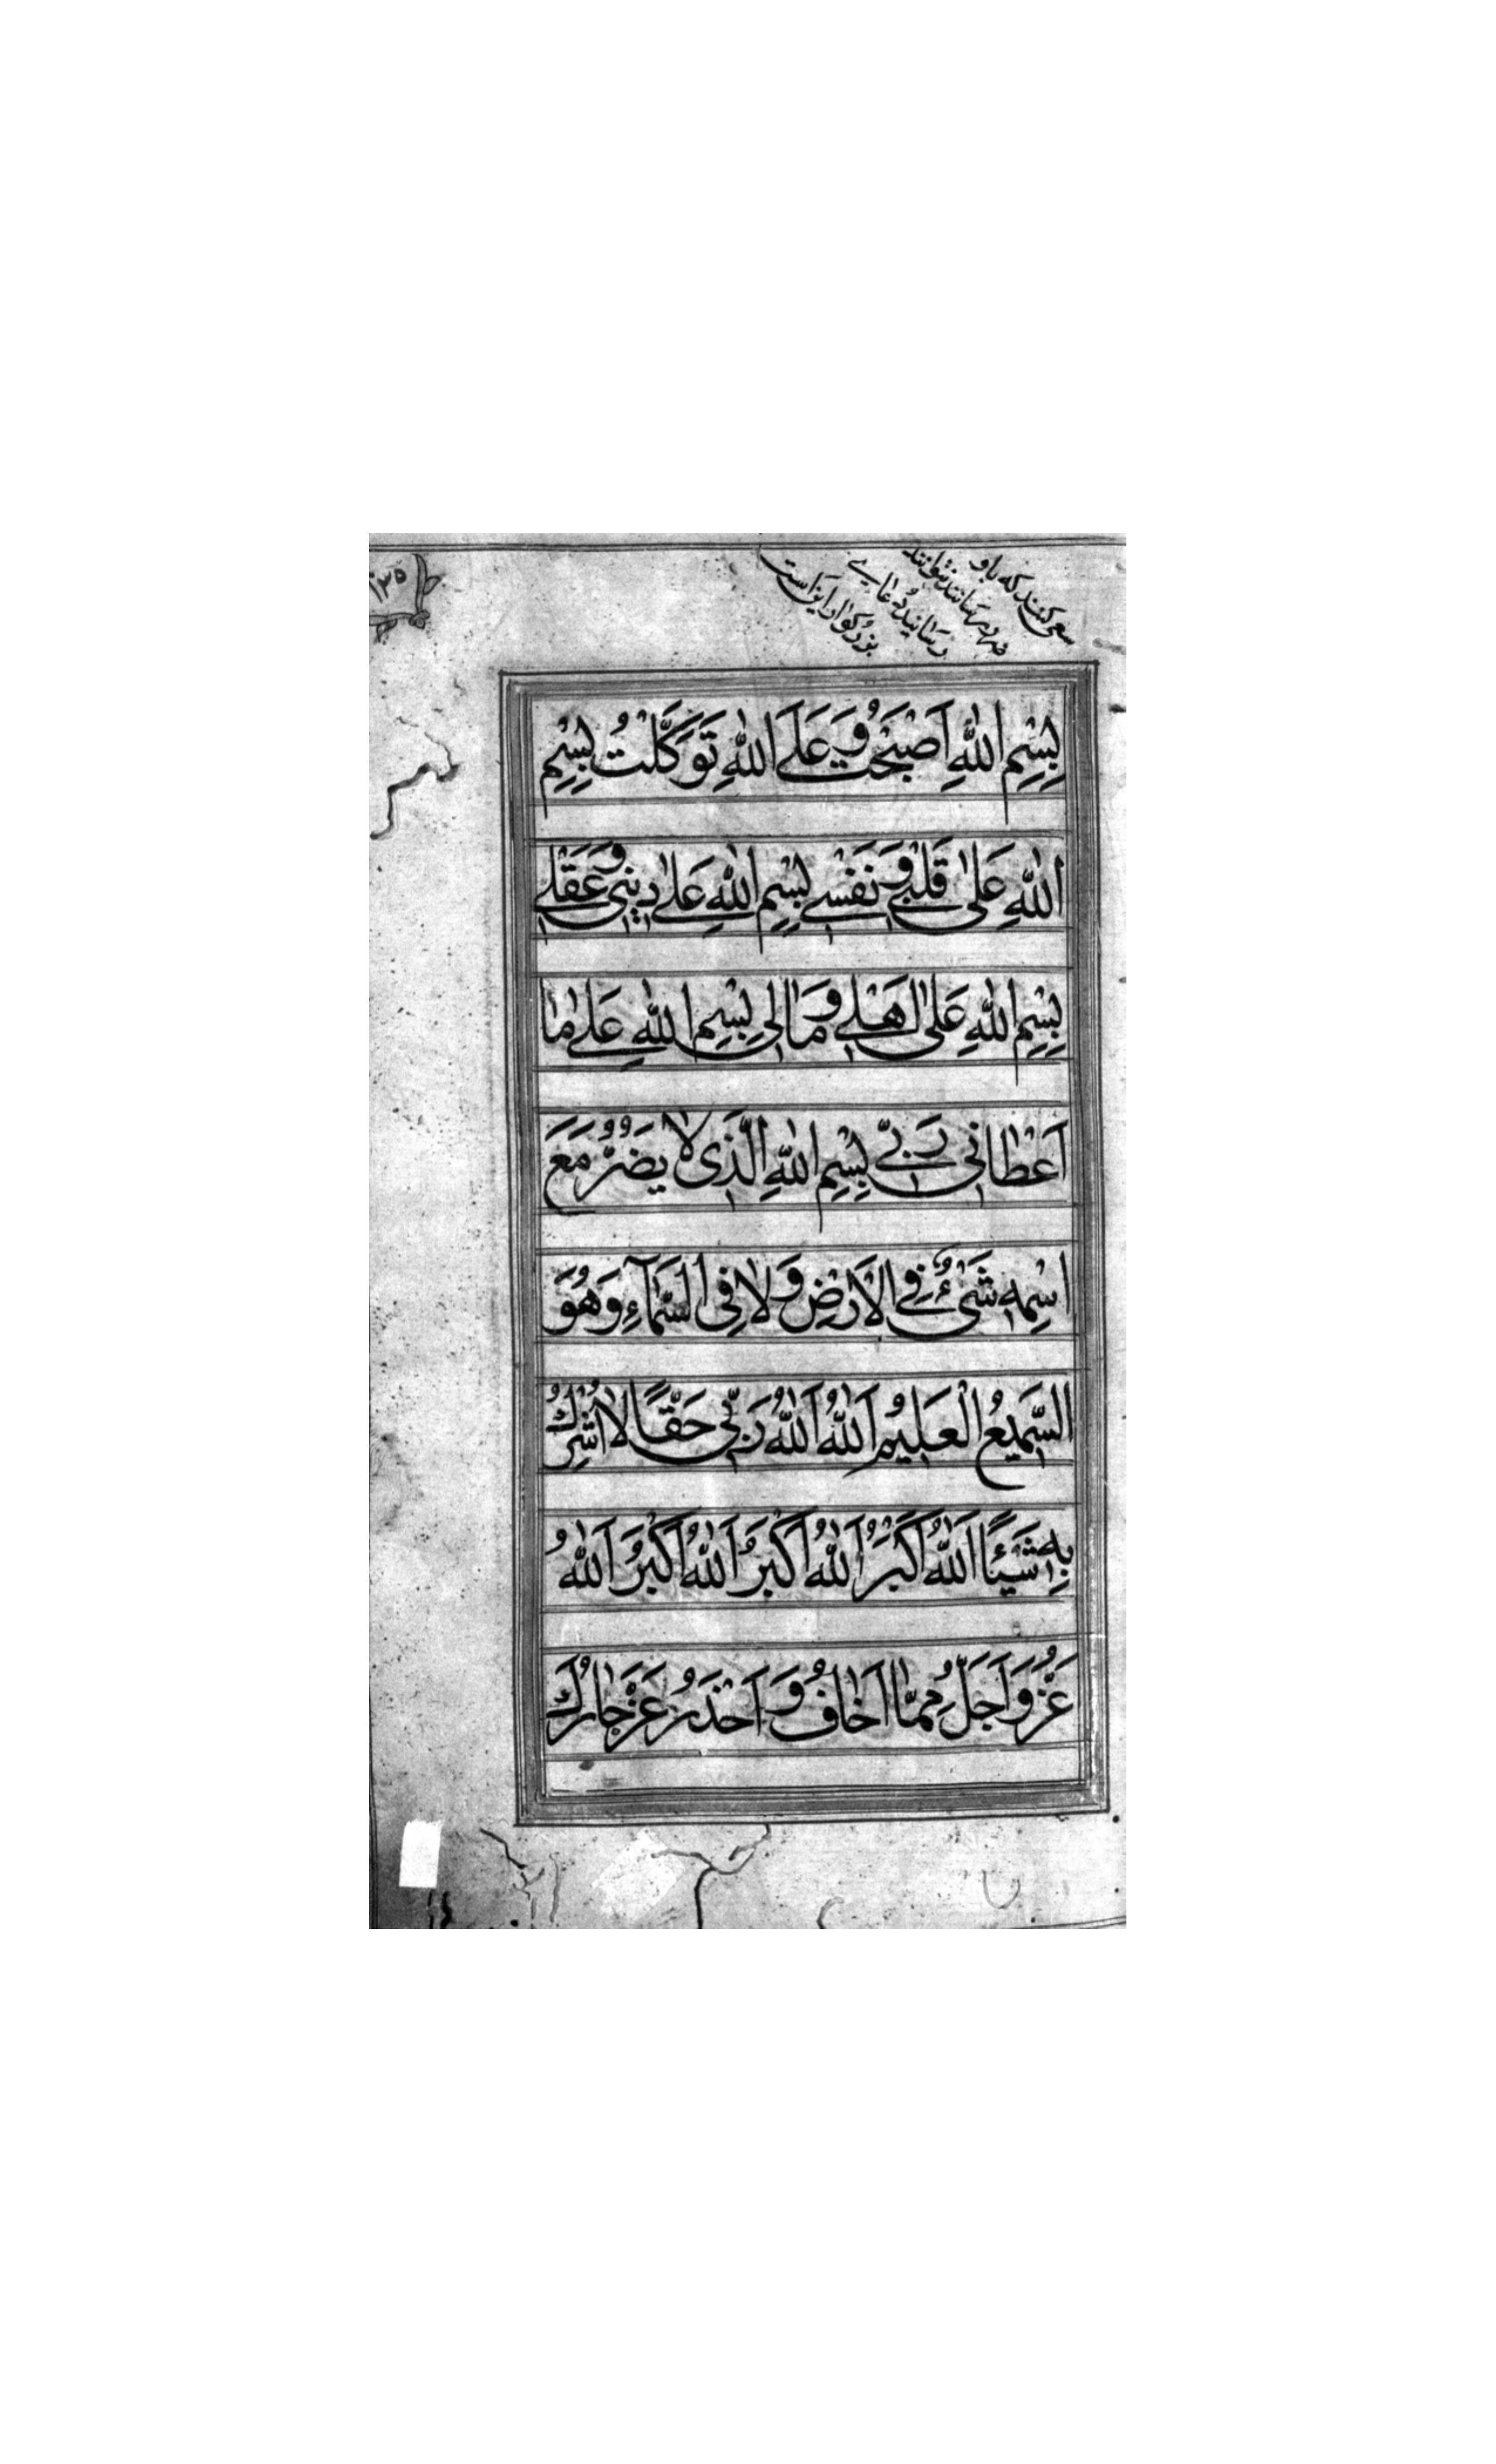 ۱۳۵
سعی کنند که باو
ضرر رسانند نتوانند
رسانید دعای
بزرگوار اینست
بِسْمِ اللهِ اَصْبَحْتُ وَ عَلَی اللهِ تَوَكَّلْتُ بِسْمِ
اللهِ عَلٰی قَلْبی وَ نَفْسی بِسْمِ اللهِ عَلٰی دینی وَ عَقْلی
بِسْمِ اللهِ عَلٰی اَهْلی وَ مَالی بِسْمِ اللهِ عَلٰی مٰا
اَعْطانی رَبّی بِسْمِ اللهِ الَّذی لٰا یَضُرُّ مَعَ
اسْمِهِ شَیْءٌ فِی الْاَرْضِ وَ لٰا فِی السَّمآءِ وَ هُوَ
السَّمیعُ الْعَلیمُ اَللهُ اَللهُ رَبّی حَقًّا لٰا اُشْرِكُ
بِهِ شَیْئًا اَللهُ اَكْبَرُ اَللهُ اَكْبَرُ اَللهُ اَكْبَرُ اَللهُ
عَزُّ وَ اَجَلُّ مِمّٰا اَخٰافُ وَ اَحْذَرُ عَزَّ جٰارُكَ